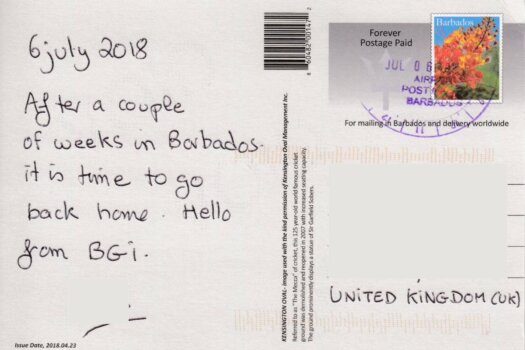 6 july 2018
After a couple
of weeks in Barbados.
it is time to go
back home. Hello
from BGi.
Issue Date, 2018.04.23
8 60482 00147 2
KENSINGTON OVAL- Image used with the kind permission of Kensington Oval Management Inc.
Referred to as "The Mecca" of cricket, this 125 year-old world famous cricket
ground was demolished and reopened in 2007 with increased seating capacity.
The ground prominently displays a statue of Sir Garfield Sobers.
Forever
Postage Paid
Barbados
JUL 06
AIRP
POST
BARBADOS
For mailing in Barbados and delivery worldwide
UNITED KINGDOM (UK)